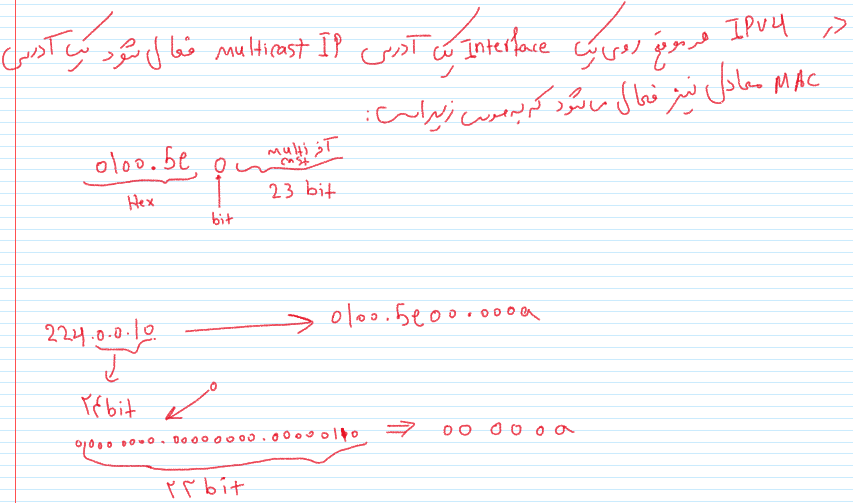 در IPv4 هر موقع روی یک Interface یک آدرس multicast IP فعال شود یک آدرس
MAC معادل نیز فعال می‌شود که به صورت زیر است:
0100.5e 0 آخر multi cast
Hex bit 23 bit
224.0.0.10 → 0100.5e00.000a
۲۴bit 0
⇒ 00 000a
۲۳bit